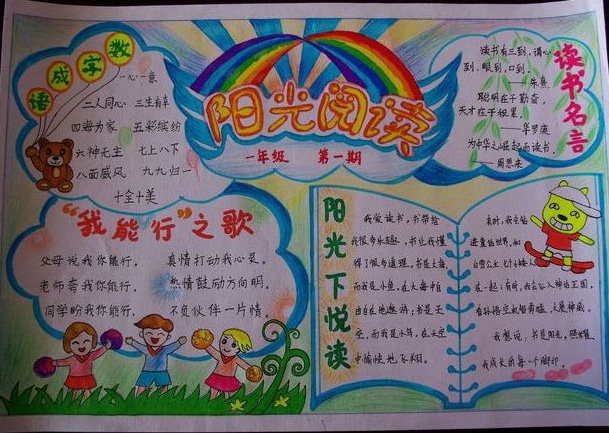 数字成语
一心一意
二人同心 三生有幸
四海为家 五彩缤纷
六神无主 七上八下
八面威风 九九归一
十全十美
阳光阅读
一年级 第一期
读书名言
读书有三到,谓心
到、眼到,口到。
——朱熹
聪明在于勤奋,
天才在于积累。
——华罗庚
为中华之崛起而读书。
——周恩来
“我能行”之歌
父母说我你能行,
真情打动我心灵。
老师寄我你能行,
热情鼓励方向明。
同学盼我你能行,
不负伙伴一片情。
阳光下悦读
我爱读书,书带给
我很多乐趣,书让我懂
得了很多道理。书是大海,
而我是小鱼,在大海中自
由自在地遨游;书是天
空,而我是小鸟,在天空
中愉快地飞翔。
有时,我会钻
进童话世界,和
白雪公主、七个小矮人
在一起;有时,我会
我想说:书是阳光,照耀着
我成长的每一个脚印。